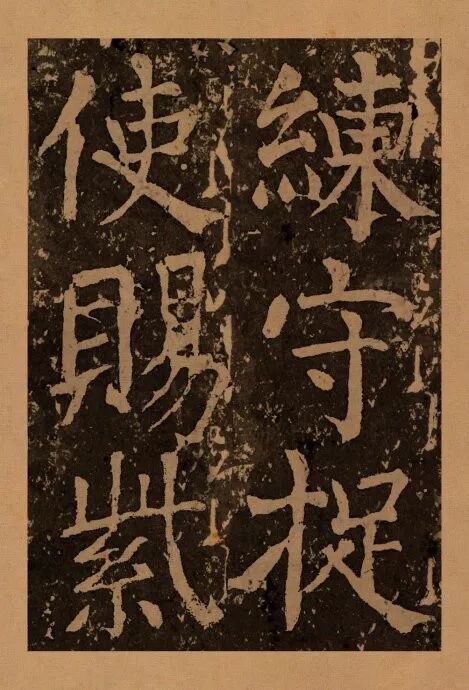 練守捉
使賜紫